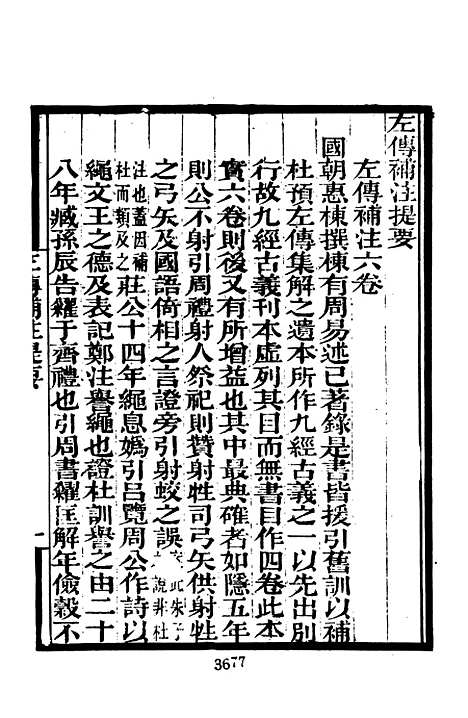 左傳補注提要
左傳補注六卷
國朝惠棟撰棟有周易述已著錄是書皆援引舊訓以補
杜預左傳集解之遺本所作九經古義之一以先出別
行故九經古義刊本虛列其目而無書目作四卷此本
實六卷則後又有所增益也其中最典確者如隱五年
則公不射引周禮射人祭祀則贊射牲司弓矢供射牲
之弓矢及國語倚相之言證旁引射蛟之誤 此朱子 說非杜
注也蓋因補 杜而類及之 莊公十四年繩息媯引呂覽周公作詩以
繩文王之德及表記鄭注譽繩也證杜訓譽之由二十
八年臧孫辰告糴于齊禮也引周書糴匡解年儉穀不
左傳補注提要 一
3677